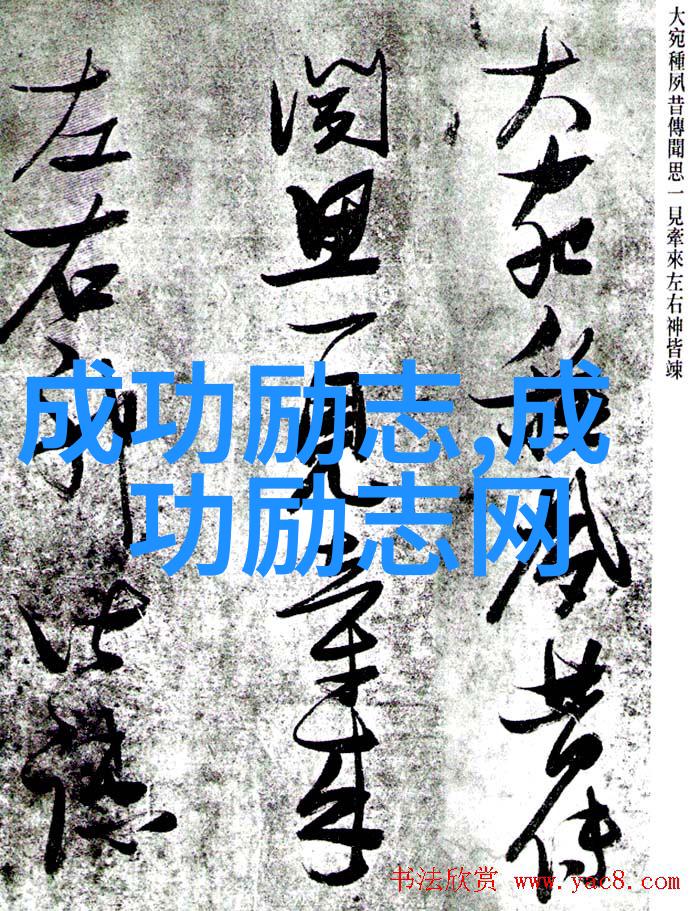 大宛種夙昔傳聞思一見牽來左右神皆竦
大宛種夙昔傳
聞思一見牽來
左右神皆竦
成功励志,成
功励志网
书法欣赏 www.yac8.com